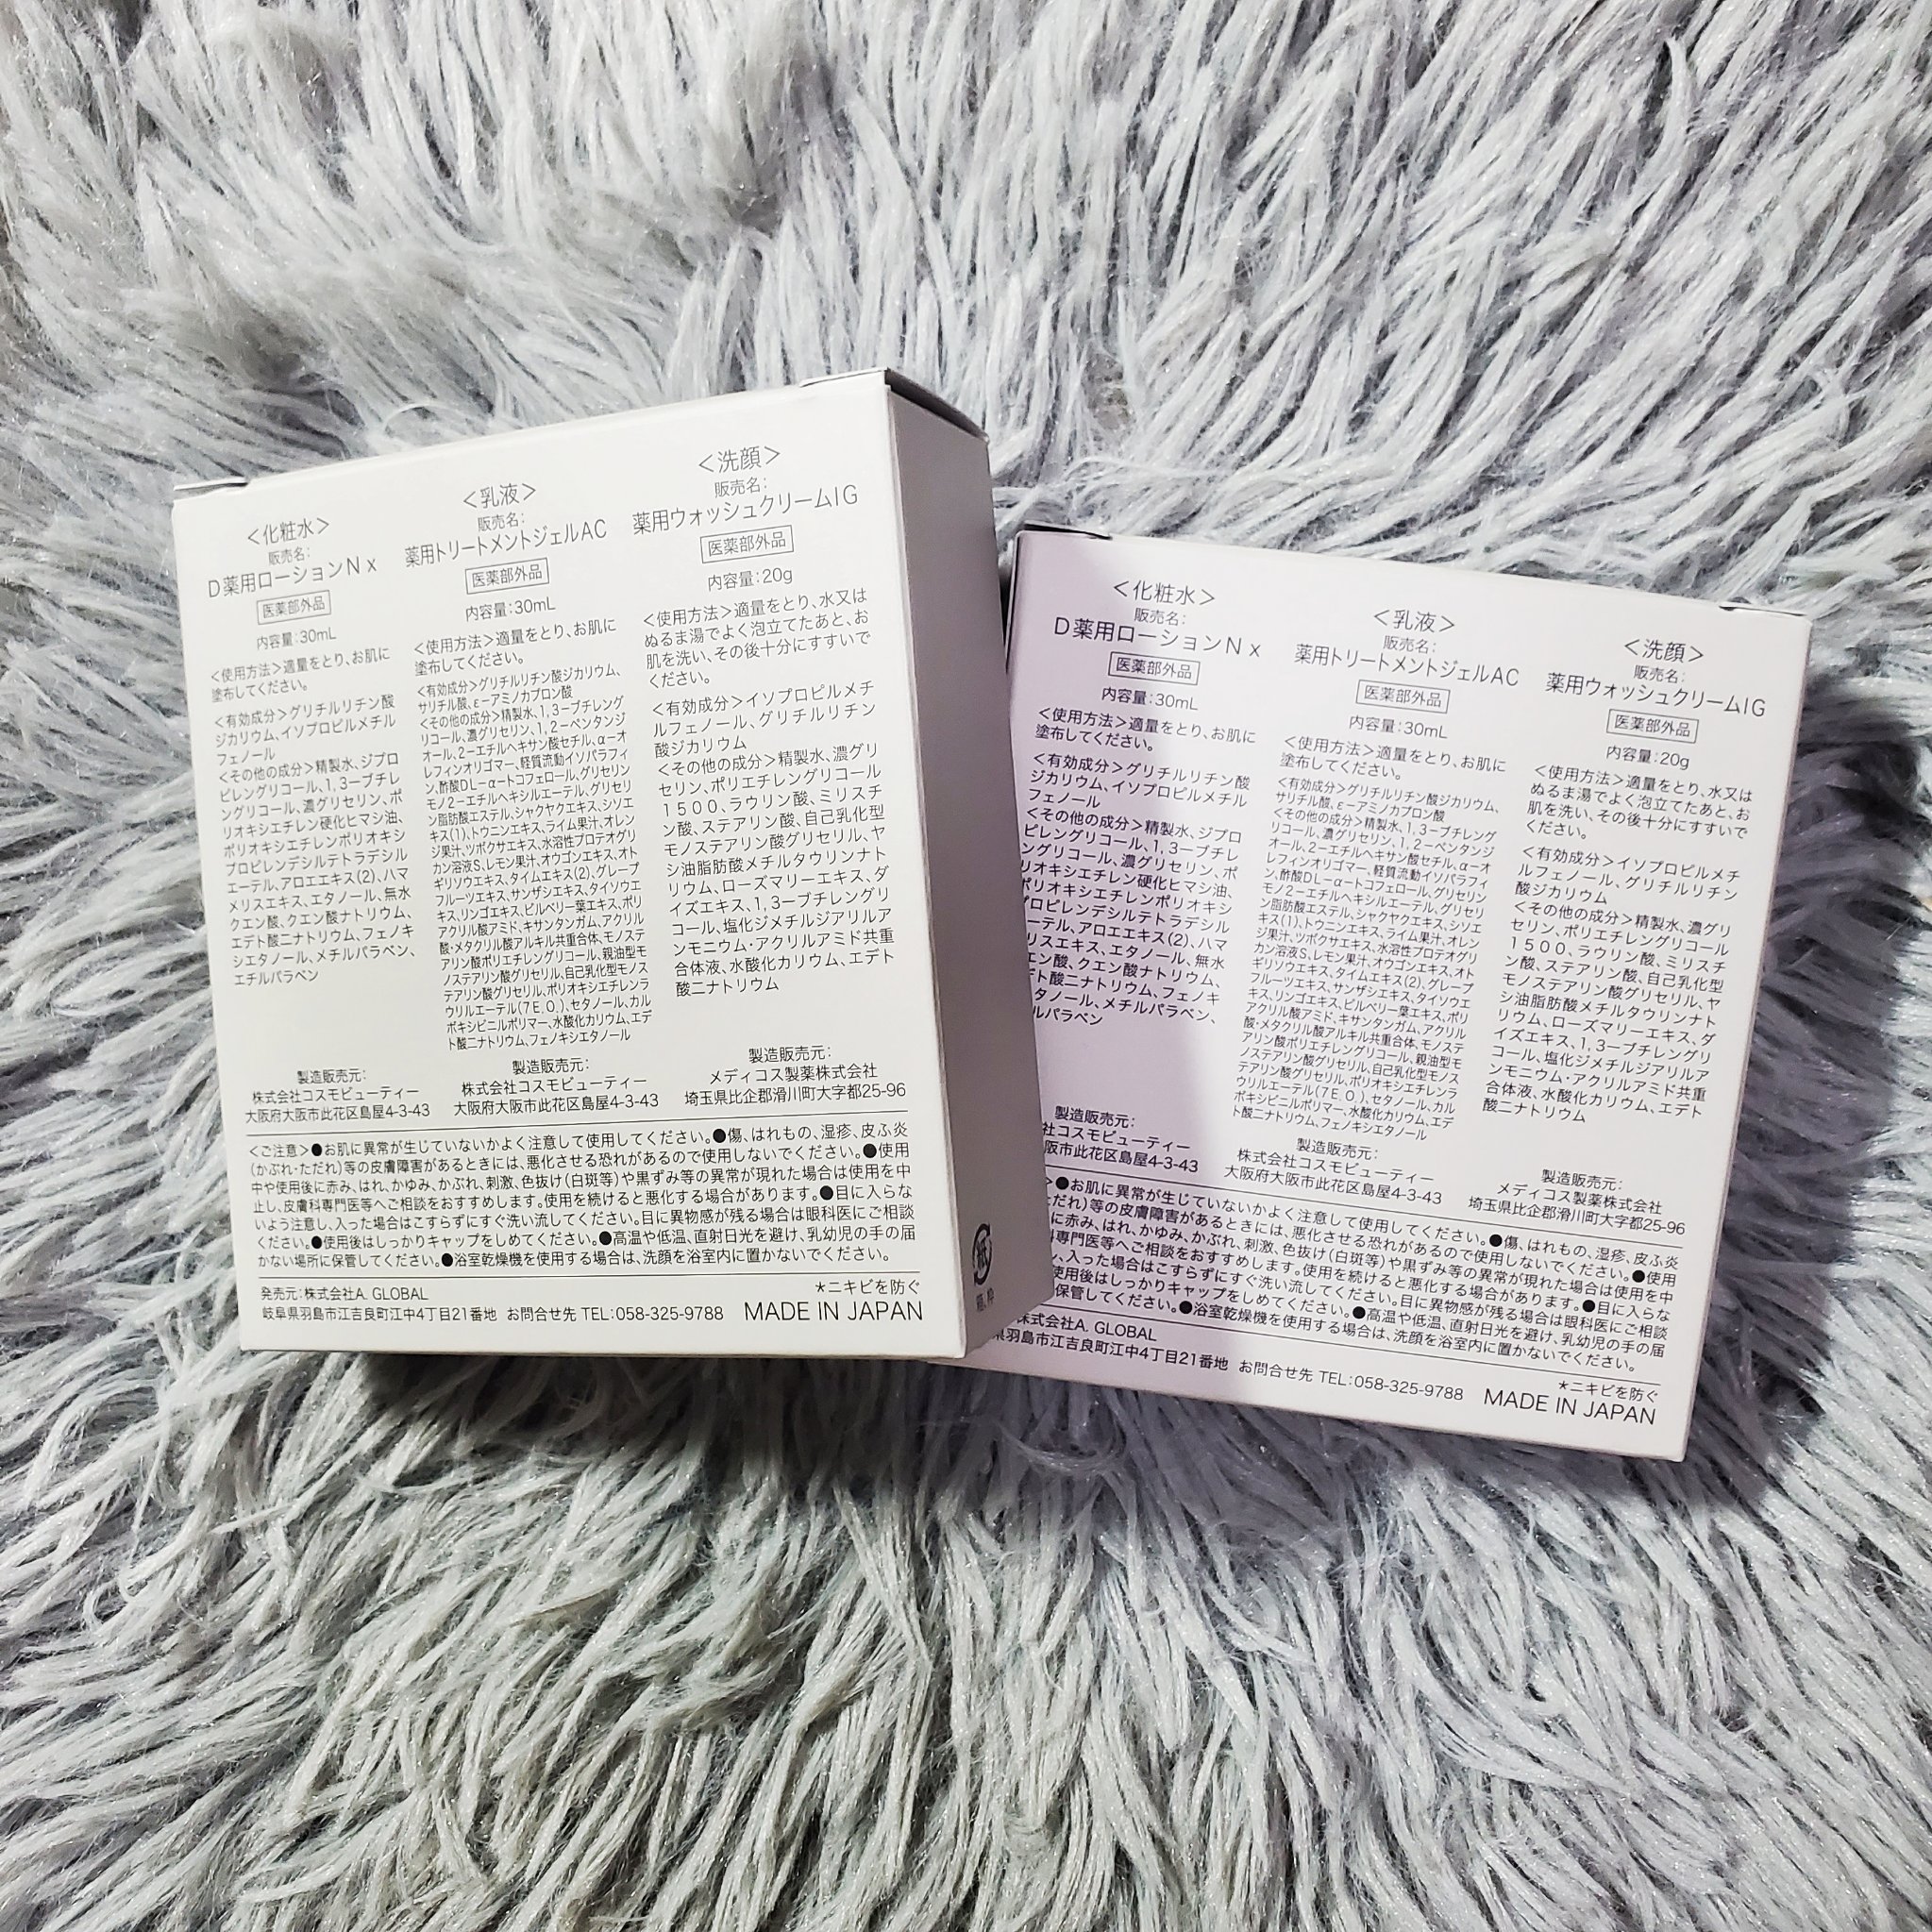 <化粧水>
販売名:
D薬用ローションNx
医薬部外品
内容量:30mL
<使用方法>適量をとり、お肌に
塗布してください。
<有効成分>グリチルリチン酸
ジカリウム、イソプロピルメチル
フェノール
<その他の成分>精製水、ジプロ
ピレングリコール、1,3ーブチレ
ングリコール、濃グリセリン、ポ
リオキシエチレン硬化ヒマシ油、
ポリオキシエチレンポリオキシ
プロピレンデシルテトラデシル
エーテル、アロエエキス(2)、ハマ
メリスエキス、エタノール、無水
クエン酸、クエン酸ナトリウム、
エデト酸二ナトリウム、フェノキ
シエタノール、メチルパラベン、
エチルパラベン
製造販売元:
株式会社コスモビューティー
大阪府大阪市此花区島屋4-3-43
<乳液>
販売名:
薬用トリートメントジェルAC
医薬部外品
内容量:30mL
<使用方法>適量をとり、お肌に
塗布してください。
<有効成分>グリチルリチン酸ジカリウム、
サリチル酸、ε-アミノカプロン酸
<その他の成分>精製水、1,3ーブチレング
リコール、濃グリセリン、1,2ーペンタンジ
オール、2ーエチルヘキサン酸セチル、αーオ
レフィンオリゴマー、軽質流動イソパラフィ
ン、酢酸DLーαートコフェロール、グリセリン
モノ2ーエチルヘキシルエーテル、グリセリ
ン脂肪酸エステル、シャクヤクエキス、シソエ
キス(1)、トウニンエキス、ライム果汁、オレン
ジ果汁、ツボクサエキス、水溶性プロテオグリ
カン溶液S、レモン果汁、オウゴンエキス、オト
ギリソウエキス、タイムエキス(2)、グレープ
フルーツエキス、サンザシエキス、タイソウエ
キス、リンゴエキス、ビルベリー葉エキス、ポリ
アクリル酸アミド、キサンタンガム、アクリル
酸・メタクリル酸アルキル共重合体、モノステ
アリン酸ポリエチレングリコール、親油型モ
ノステアリン酸グリセリル、自己乳化型モノス
テアリン酸グリセリル、ポリオキシエチレンラ
ウリルエーテル(7E.O.)、セタノール、カル
ボキシビニルポリマー、水酸化カリウム、エデ
ト酸二ナトリウム、フェノキシエタノール
製造販売元:
株式会社コスモビューティー
大阪府大阪市此花区島屋4-3-43
<洗顔>
販売名:
薬用ウォッシュクリームIG
医薬部外品
内容量:20g
<使用方法>適量をとり、水又は
ぬるま湯でよく泡立てたあと、お
肌を洗い、その後十分にすすいで
ください。
<有効成分>イソプロピルメチ
ルフェノール、グリチルリチン
酸ジカリウム
<その他の成分>精製水、濃グリ
セリン、ポリエチレングリコール
1500、ラウリン酸、ミリスチ
ン酸、ステアリン酸、自己乳化型
モノステアリン酸グリセリル、ヤ
シ油脂肪酸メチルタウリンナト
リウム、ローズマリーエキス、ダ
イズエキス、1,3ーブチレングリ
コール、塩化ジメチルジアリルア
ンモニウム・アクリルアミド共重
合体液、水酸化カリウム、エデト
酸二ナトリウム
製造販売元:
メディコス製薬株式会社
埼玉県比企郡滑川町大字都25-96
<ご注意>●お肌に異常が生じていないかよく注意して使用してください。●傷、はれもの、湿疹、皮ふ炎
(かぶれ・ただれ)等の皮膚障害があるときには、悪化させる恐れがあるので使用しないでください。●使用
中や使用後に赤み、はれ、かゆみ、かぶれ、刺激、色抜け(白斑等)や黒ずみ等の異常が現れた場合は使用を中
止し、皮膚科専門医等へご相談をおすすめします。使用を続けると悪化する場合があります。●目に入らな
いよう注意し、入った場合はこすらずにすぐ洗い流してください。目に異物感が残る場合は眼科医にご相談
ください。●使用後はしっかりキャップをしめてください。●高温や低温、直射日光を避け、乳幼児の手の届
かない場所に保管してください。●浴室乾燥機を使用する場合は、洗顔を浴室内に置かないでください。
発売元:株式会社A. GLOBAL
*ニキビを防ぐ
岐阜県羽島市江吉良町江中4丁目21番地 お問合せ先 TEL:058-325-9788 MADE IN JAPAN
紙
箱、枠
<化粧水>
販売名:
D薬用ローションNx
医薬部外品
内容量:30mL
<使用方法>適量をとり、お肌に
塗布してください。
<有効成分>グリチルリチン酸
ジカリウム、イソプロピルメチル
フェノール
<その他の成分>精製水、ジプロ
ピレングリコール、1,3ーブチレ
ングリコール、濃グリセリン、ポ
リオキシエチレン硬化ヒマシ油、
ポリオキシエチレンポリオキシ
プロピレンデシルテトラデシル
ーテル、アロエエキス(2)、ハマ
リスエキス、エタノール、無水
エン酸、クエン酸ナトリウム、
デト酸二ナトリウム、フェノキ
タノール、メチルパラベン、
ルパラベン
製造販売元:
社コスモビューティー
阪市此花区島屋4-3-43
<乳液>
販売名:
薬用トリートメントジェルAC
医薬部外品
内容量:30mL
<使用方法>適量をとり、お肌に
塗布してください。
<有効成分>グリチルリチン酸ジカリウム、
サリチル酸、ε-アミノカプロン酸
<その他の成分>精製水、1,3ーブチレング
リコール、濃グリセリン、1,2ーペンタンジ
オール、2ーエチルヘキサン酸セチル、αーオ
レフィンオリゴマー、軽質流動イソパラフィ
ン、酢酸DLーαートコフェロール、グリセリン
モノ2ーエチルヘキシルエーテル、グリセリ
ン脂肪酸エステル、シャクヤクエキス、シソエ
キス(1)、トウニンエキス、ライム果汁、オレン
ジ果汁、ツボクサエキス、水溶性プロテオグリ
カン溶液S、レモン果汁、オウゴンエキス、オト
ギリソウエキス、タイムエキス(2)、グレープ
フルーツエキス、サンザシエキス、タイソウエ
キス、リンゴエキス、ビルベリー葉エキス、ポリ
アクリル酸アミド、キサンタンガム、アクリル
酸・メタクリル酸アルキル共重合体、モノステ
アリン酸ポリエチレングリコール、親油型モ
ノステアリン酸グリセリル、自己乳化型モノス
テアリン酸グリセリル、ポリオキシエチレンラ
ウリルエーテル(7E.O.)、セタノール、カル
ボキシビニルポリマー、水酸化カリウム、エデ
ト酸二ナトリウム、フェノキシエタノール
製造販売元:
株式会社コスモビューティー
大阪府大阪市此花区島屋4-3-43
<洗顔>
販売名:
薬用ウォッシュクリームIG
医薬部外品
内容量:20g
<使用方法>適量をとり、水又は
ぬるま湯でよく泡立てたあと、お
肌を洗い、その後十分にすすいで
ください。
<有効成分>イソプロピルメチ
ルフェノール、グリチルリチン
酸ジカリウム
<その他の成分>精製水、濃グリ
セリン、ポリエチレングリコール
1500、ラウリン酸、ミリスチ
ン酸、ステアリン酸、自己乳化型
モノステアリン酸グリセリル、ヤ
シ油脂肪酸メチルタウリンナト
リウム、ローズマリーエキス、ダ
イズエキス、1,3ーブチレングリ
コール、塩化ジメチルジアリルア
ンモニウム・アクリルアミド共重
合体液、水酸化カリウム、エデト
酸二ナトリウム
製造販売元:
メディコス製薬株式会社
埼玉県比企郡滑川町大字都25-96
>●お肌に異常が生じていないかよく注意して使用してください。●傷、はれもの、湿疹、皮ふ炎
だれ)等の皮膚障害があるときには、悪化させる恐れがあるので使用しないでください。●使用
に赤み、はれ、かゆみ、かぶれ、刺激、色抜け(白斑等)や黒ずみ等の異常が現れた場合は使用を中
専門医等へご相談をおすすめします。使用を続けると悪化する場合があります。●目に入らな
、入った場合はこすらずにすぐ洗い流してください。目に異物感が残る場合は眼科医にご相談
使用後はしっかりキャップをしめてください。●高温や低温、直射日光を避け、乳幼児の手の届
保管してください。●浴室乾燥機を使用する場合は、洗顔を浴室内に置かないでください。
株式会社A. GLOBAL
*ニキビを防ぐ
県羽島市江吉良町江中4丁目21番地 お問合せ先 TEL:058-325-9788 MADE IN JAPAN